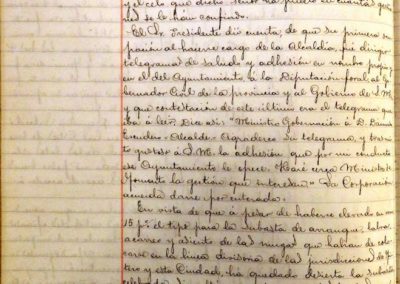 y el celo que dicho señor ha puesto en cuantas
se le han confiado.
El Sr. Presidente dió cuenta, de que su primera
al hacerse cargo de la Alcaldía, fué dirigir
telegrama de saludo y adhesión en nombre propio
en el del Ayuntamiento á la Diputación foral, al
Civil de la provincia y al Gobierno de S.M.
y que contestación de este último era el telegrama
á leer. Dice así: "Ministro Gobernación á D.
Alcalde. Agradezco su telegrama, y
gustoso á S.M. la adhesión que por su conducto
ese Ayuntamiento le ofrece. Haré cerca Ministro
Fomento la gestión que interesa." La Corporación
acuerda darse por enterada.
En vista de que á pesar de haberse elevado
15 p% el tipo para la subasta de arranque, labra,
acarreo y asiento de las mugas que habían de
en la línea divisoria de las jurisdicciones de
y esta Ciudad, ha quedado desierta la subasta